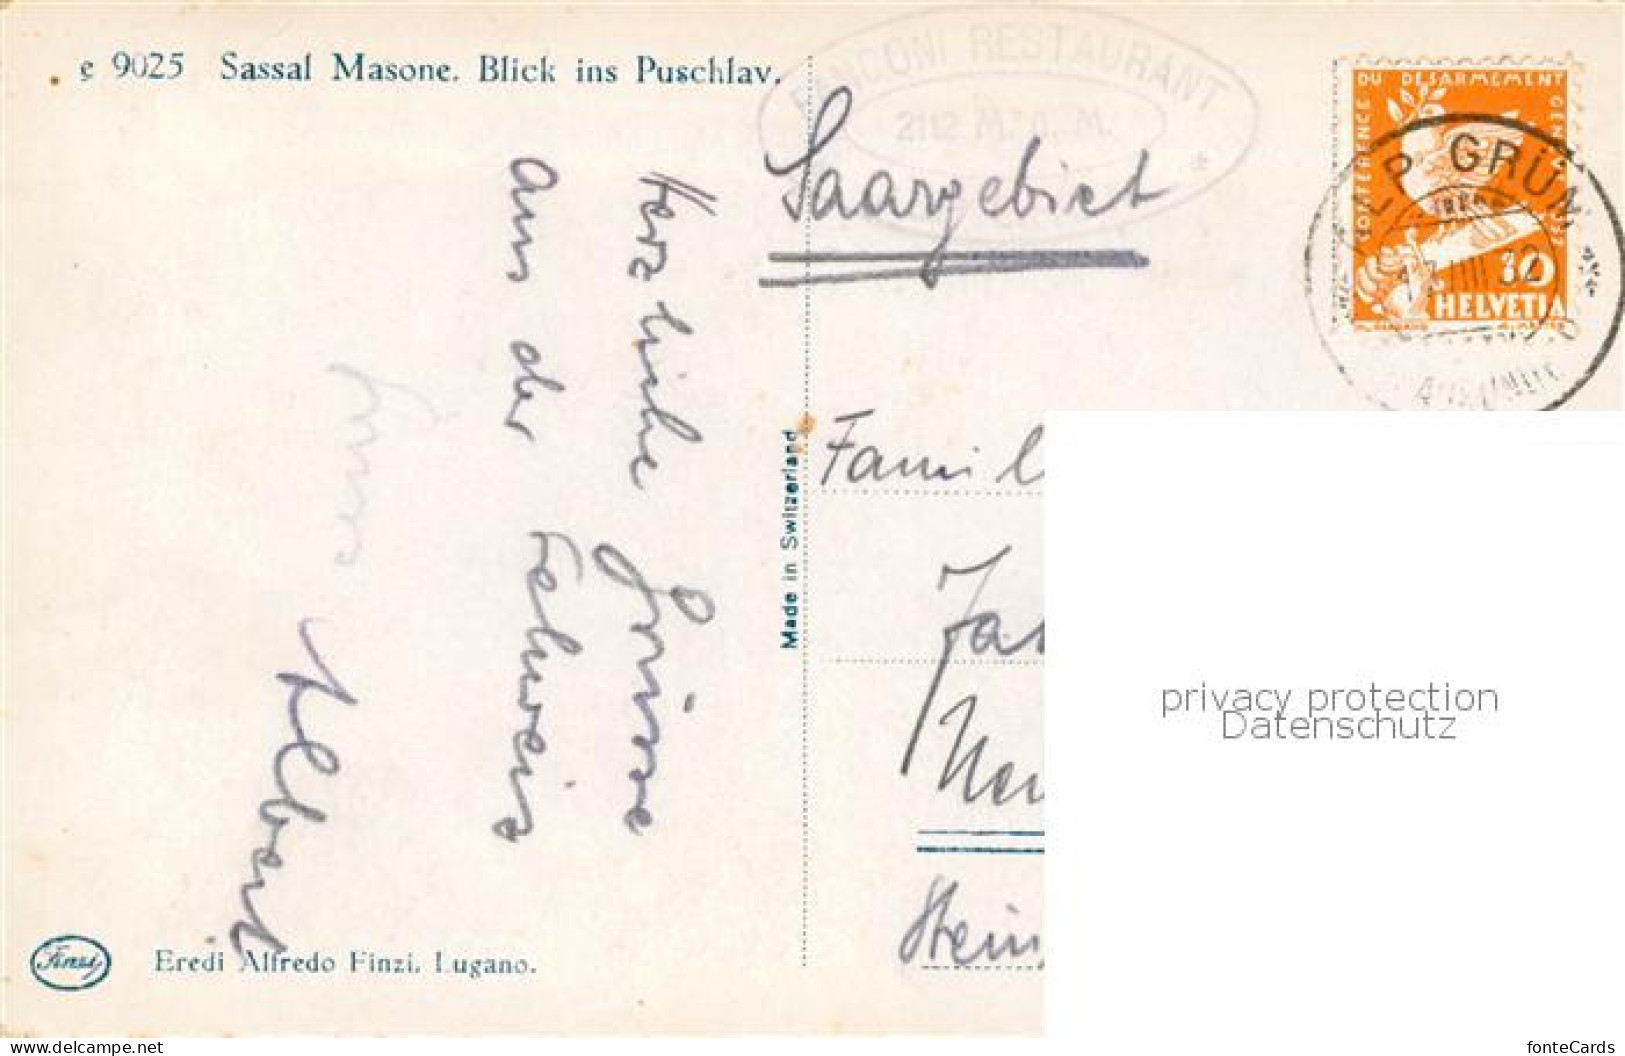 e 9025 Sassal Masone. Blick ins Puschlav.
RESTAURANT
2112 M. ü. M.
CONFERENCE DU DESARMEMENT GENEVE 1932
10
HELVETIA
ALP GRÜM
Saargebiet
Herzliche Grüsse
aus der Schweiz
Euer Albert
Made in Switzerland
Famil
Stein
Finzi
Eredi Alfredo Finzi. Lugano.
privacy protection
Datenschutz
www.delcampe.net
fonteCards